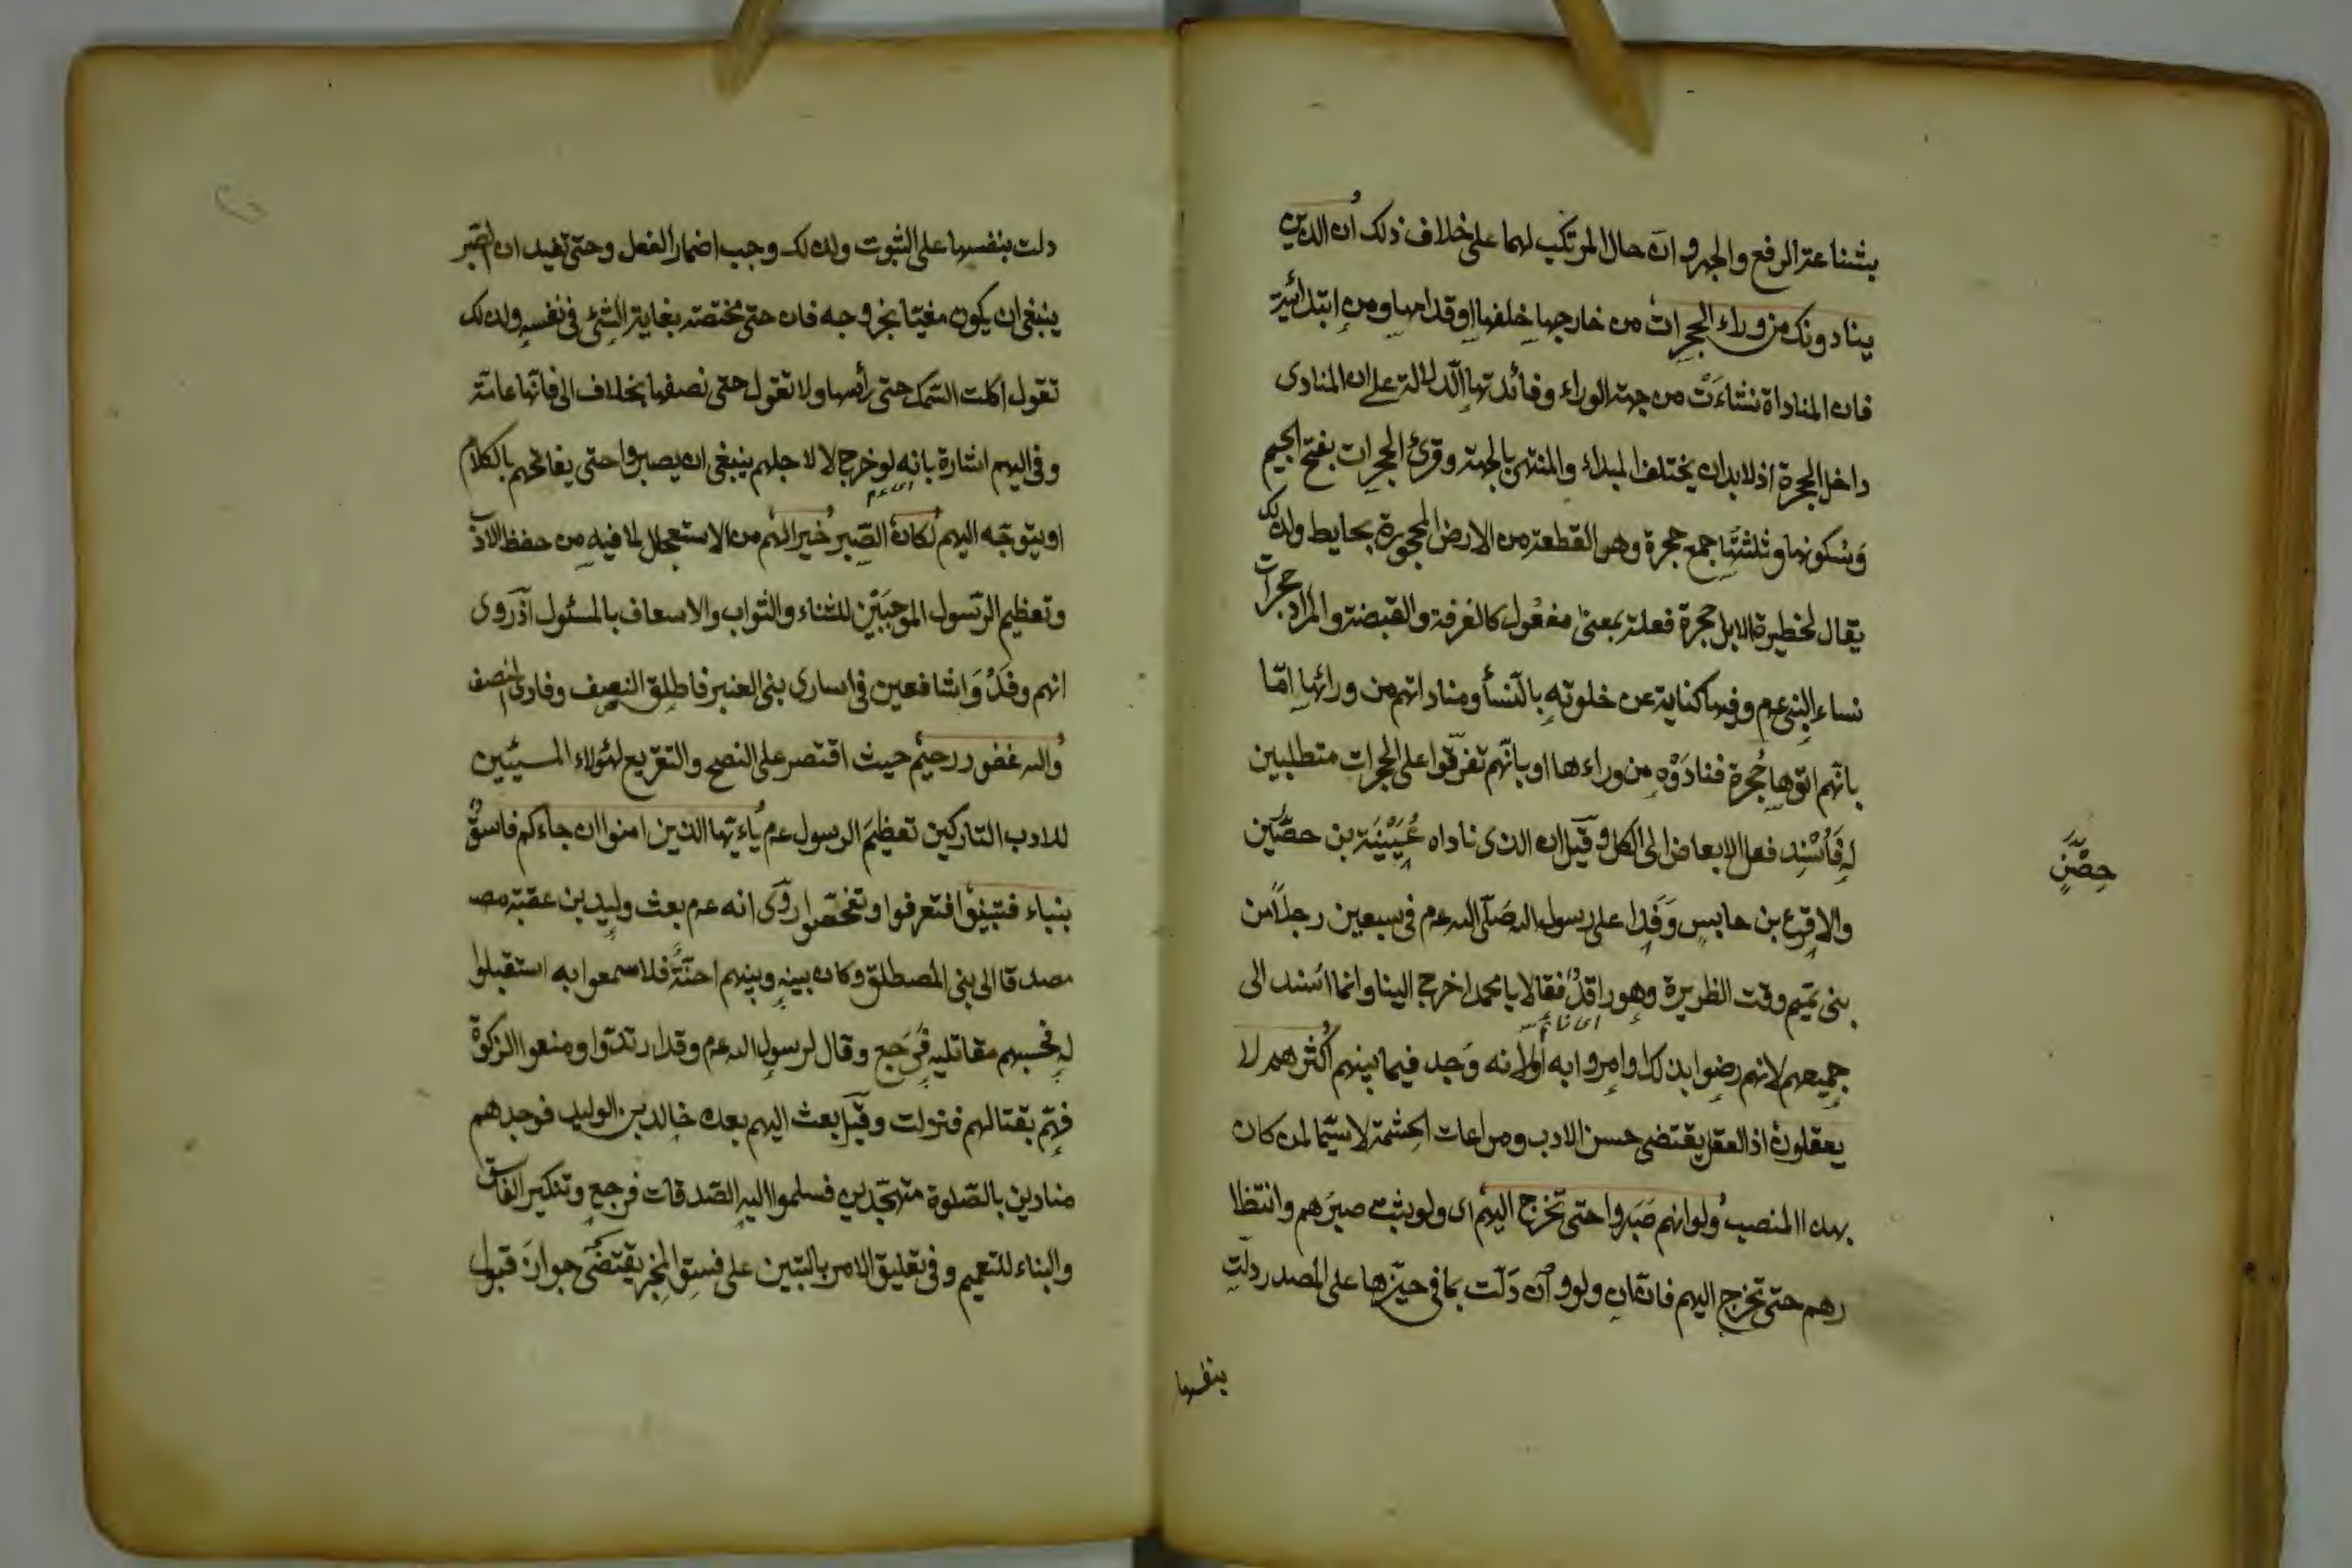 بشناعة الرفع والجهر وان حال المرتكب لهما على خلاف ذلك ان الذين
ينادونك من وراء الحجرات من خارجها خلفها او قدامها ومن ابتدائية
فان المناداة نشاءت من جهة الوراء وفائدتها الدلالة على ان المنادى
داخل الحجرة اذ لا بد ان يختلف المبداء والمنتهى بالجهة وقرئ الحجرات بفتح الجيم
وسكونها وثلثتها جمع حجرة وهو القطعة من الارض المحجورة بحايط ولذلك
يقال لحظيرة الابل حجرة فعلة بمعنى مفعول كالغرفة والقبضة والمراد حجرات
نساء النبى عم وفيها كناية عن خلوته بالنسأ ومناداتهم من ورائها امّا
بانهم اتوها حُجرة فنادَوْه من وراءها او بانّهم تفرّقوا على الحجرات متطلبين
له فَأُسْنِد فعل الابعاض الى الكل وقيل ان الذى ناداه عُيَيْنَة بن حصّين
حِصْنٍ
والاقرع بن حابس وَفَدا على رسول الله صلّى الله عم فى سبعين رجلاً من
بنى تميم وقت الظهيرة وهو راقدٌ فقالا يا محمد اخرج الينا وانما اسند الى
اى نائم
جميعهم لانهم رضوا بذلك او امروا به او لانه وَجد فيما بينهم اكثرهم لا
يعقلون اذ العقل يقتضى حسن الادب ومراعات الحشمة لا سيّما لمن كان
بهذا المنصب ولو انهم صَبَروا حتى تخرج اليهم اى ولو يثبت صبرَهم وانتظا
رهم حتى تخرج اليهم فان ان ولو وان دَلّت بما فى حيّزها على المصدر دلّت
بنفسها
دلت بنفسها على الثبوت ولذلك وجب اضمار الفعل وحتى تفيد ان الصّبر
ينبغى ان يكون مغيّا بخروجه فان حتى مختصة بغاية الشئ فى نفسه ولذلك
تقول اكلت السّمك حتى رأسها ولا تقول حتى نصفها بخلاف الى فانّها عامّة
وفى اليهم اشارة بانه لو خرج لا لاجلهم ينبغى ان يصبروا حتى يفاتحهم بالكلام
او يتوجّه اليهم لكان الصّبر خيرا لهم من الاستعجال لما فيه من حفظ الادب
وتعظيم الرّسول الموجَبَيْن للثناء والثواب والاسعاف بالمسئول اذ روى
انهم وفَدُوا شافعين فى اسارى بنى العنبر فاطلق النصف وفادى النصف
والله غفور رحيم حيث اقتصر على النصح والتقريع لهؤلاء المسيئين
للادب التاركين تعظيمَ الرسول عم ياءيّها الذين امنوا ان جاءكم فاسقٌ
بنباء فتبيّنوا فتعرفوا وتفحّصوا روى انه عم بعث وليد بن عقبة مصـ
مصدقا الى بنى المصطلق وكان بينه وبينهم احنَّةٌ فلا سمعوا به استقبلوا
له فحسبهم مقاتليه فرَجَع وقال لرسول الله عم وقد ارتدّوا ومنعوا الزكوة
فهمّ بقتالهم فنزلت وقيل بعث اليهم بعده خالد بن الوليد فوجدهم
منادين بالصّلوة متهجّدين فسلموا اليه الصّدقات فرجع وتنكير الفاسق
والبناء للتعميم وفى تعليق الامر بالتبيّن على فسق المخبر يقتضى جوازَ قبول